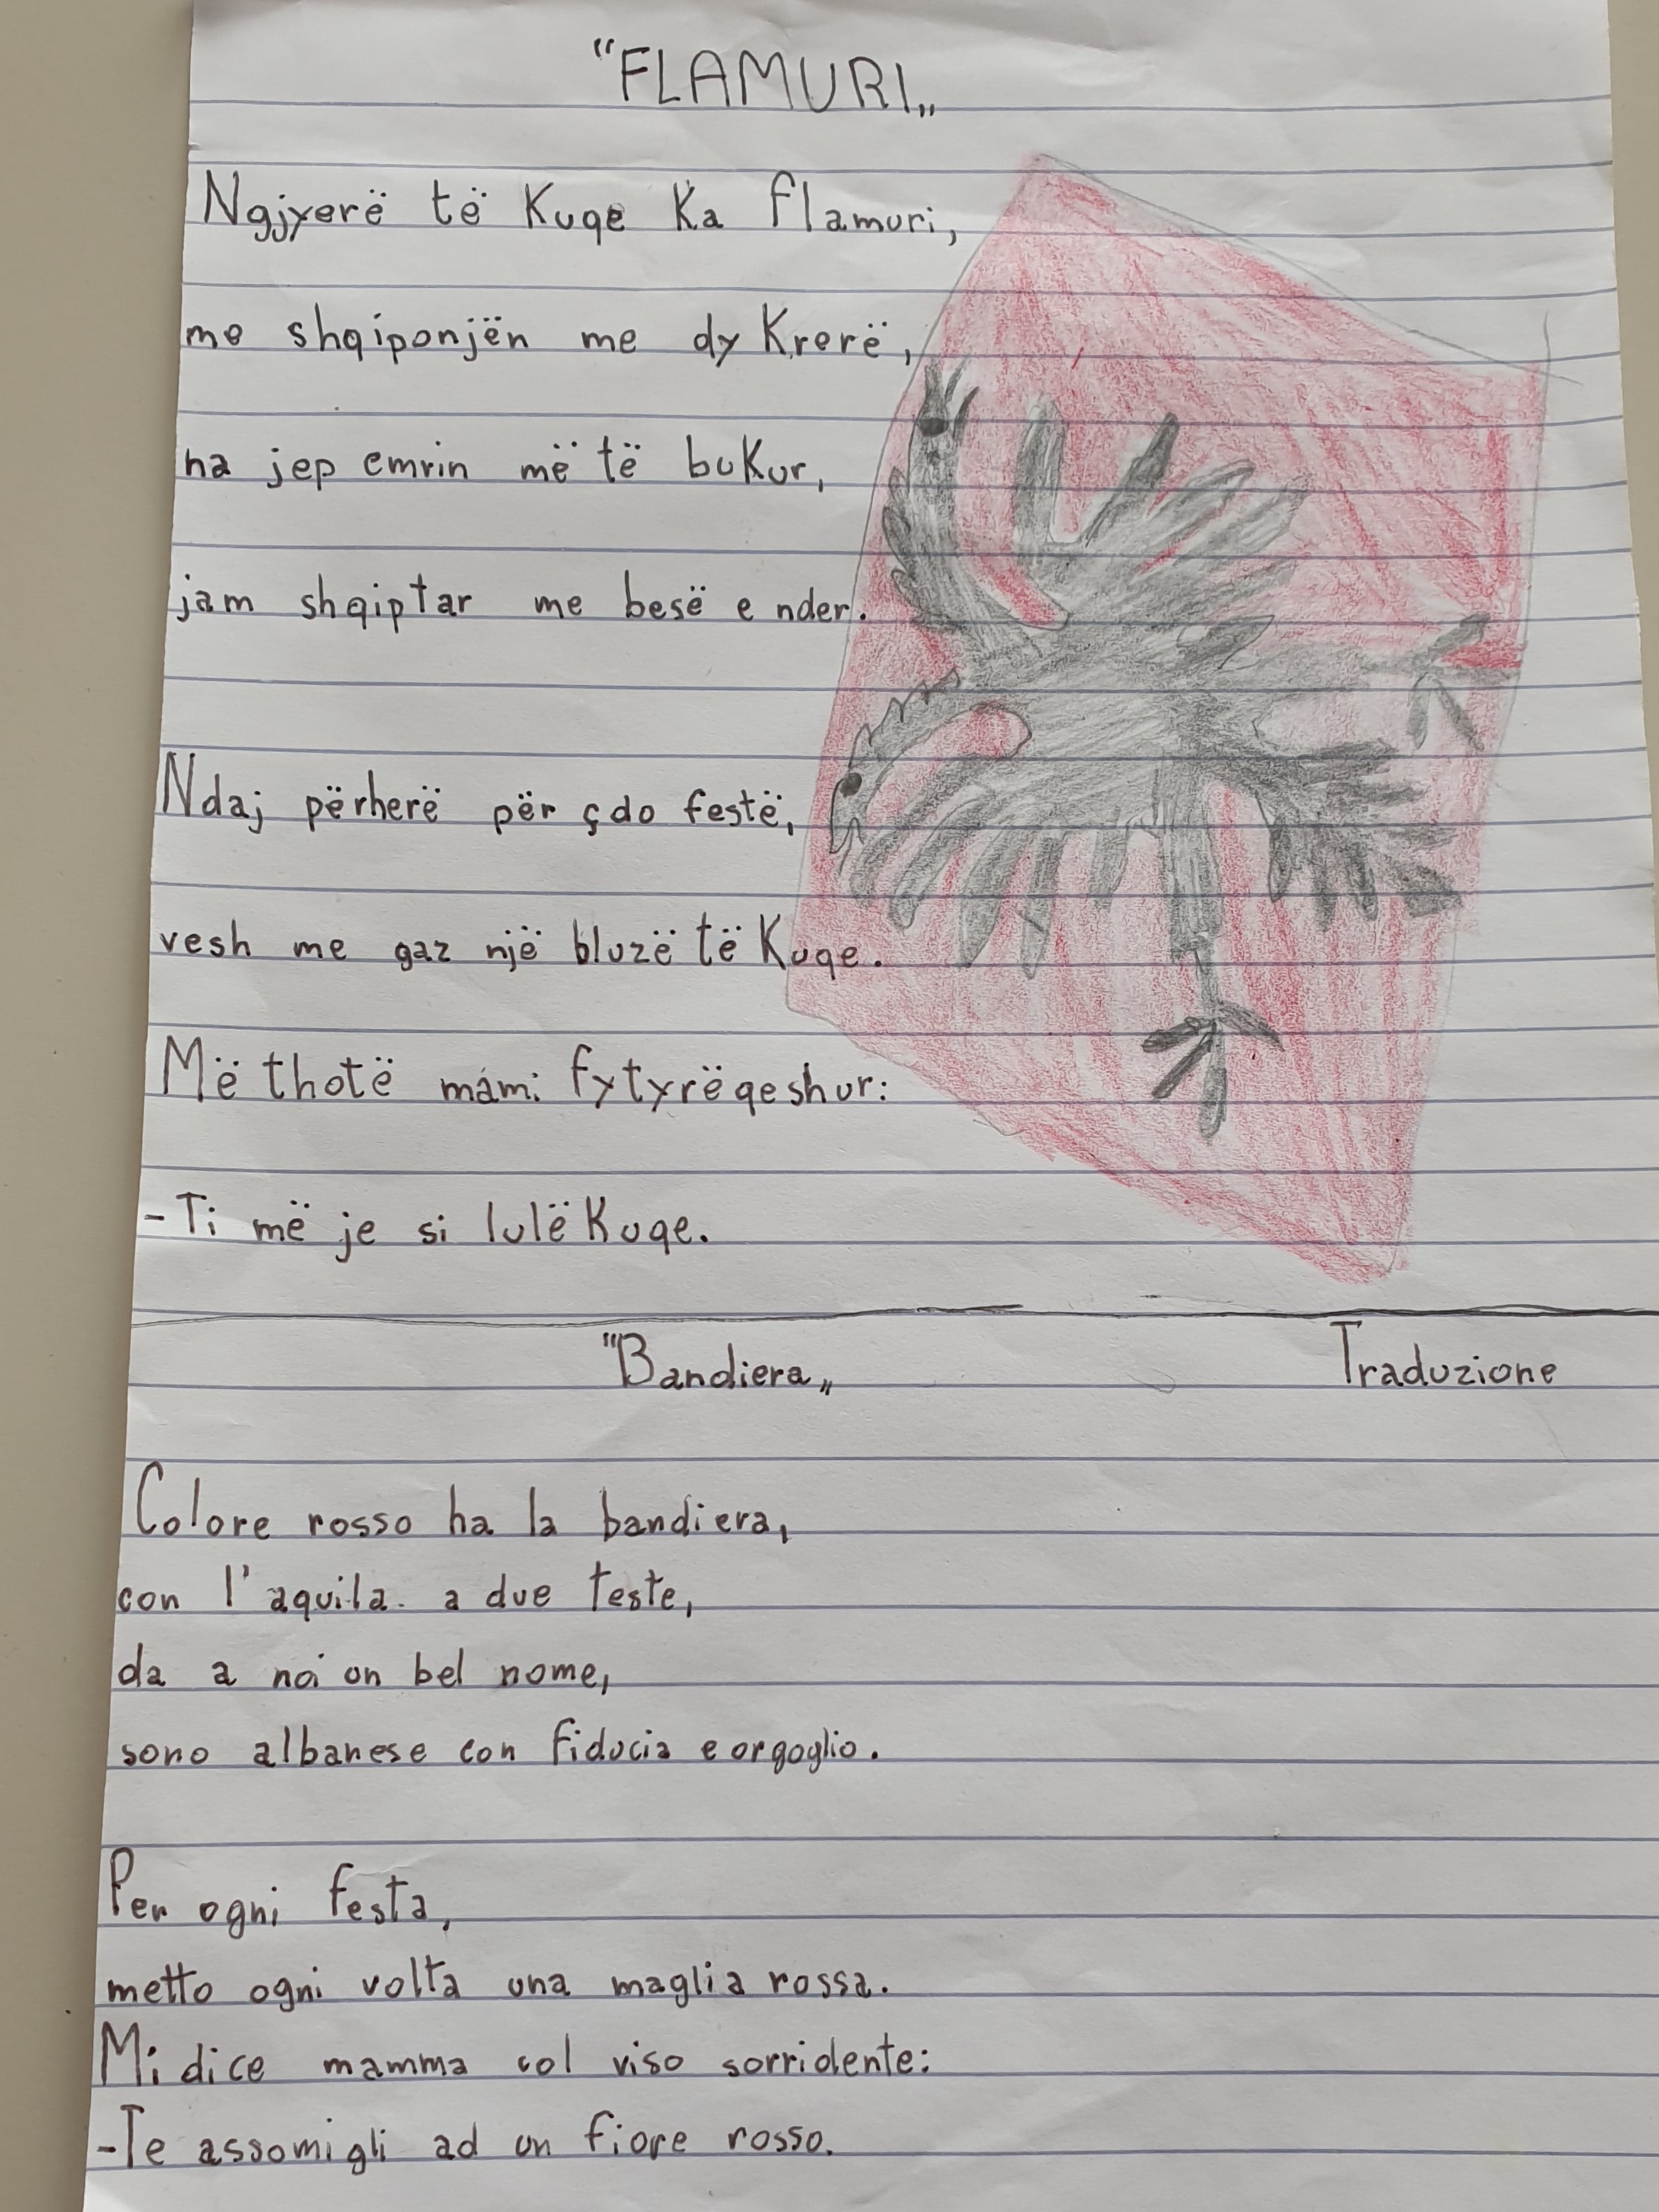 "FLAMURI„
Ngjyerë të Kuqe Ka flamuri,
me shqiponjën me dy Krerë,
na jep emrin më të buKur,
jam shqiptar me besë e nder.
Ndaj përherë për çdo festë,
vesh me gaz një bluzë të Kuqe.
Më thotë mámi fytyrëqeshur:
-Ti më je si lulëKuqe.
"Bandiera„ Traduzione
Colore rosso ha la bandiera,
con l'aquila a due teste,
da a noi un bel nome,
sono albanese con fiducia e orgoglio.
Per ogni festa,
metto ogni volta una maglia rossa.
Mi dice mamma col viso sorridente:
-Te assomigli ad un fiore rosso.